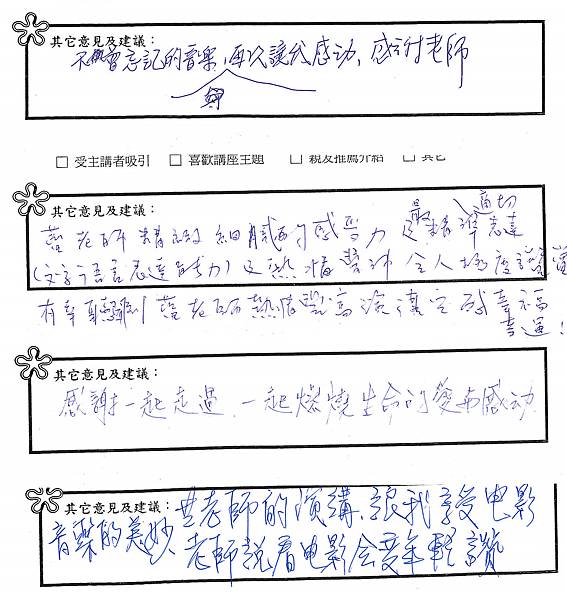 其它意見及建議：
不會忘記的音樂，再次讓我感动，感谢老師
□ 受主講者吸引 □ 喜歡講座主題 □ 親友推薦介紹 □ 其它
其它意見及建議：
適切
老師 細膩的感受力 最精準表達
(文字語言表達能力) 熱情 令人極度讚賞
有幸聽到 老師熱情 演講 幸福
幸運！
其它意見及建議：
感謝一起走過、一起燃燒生命的愛与感动
其它意見及建議：
老師的演講，讓我享受电影
音樂的美妙、老師說看电影会變年輕 讚